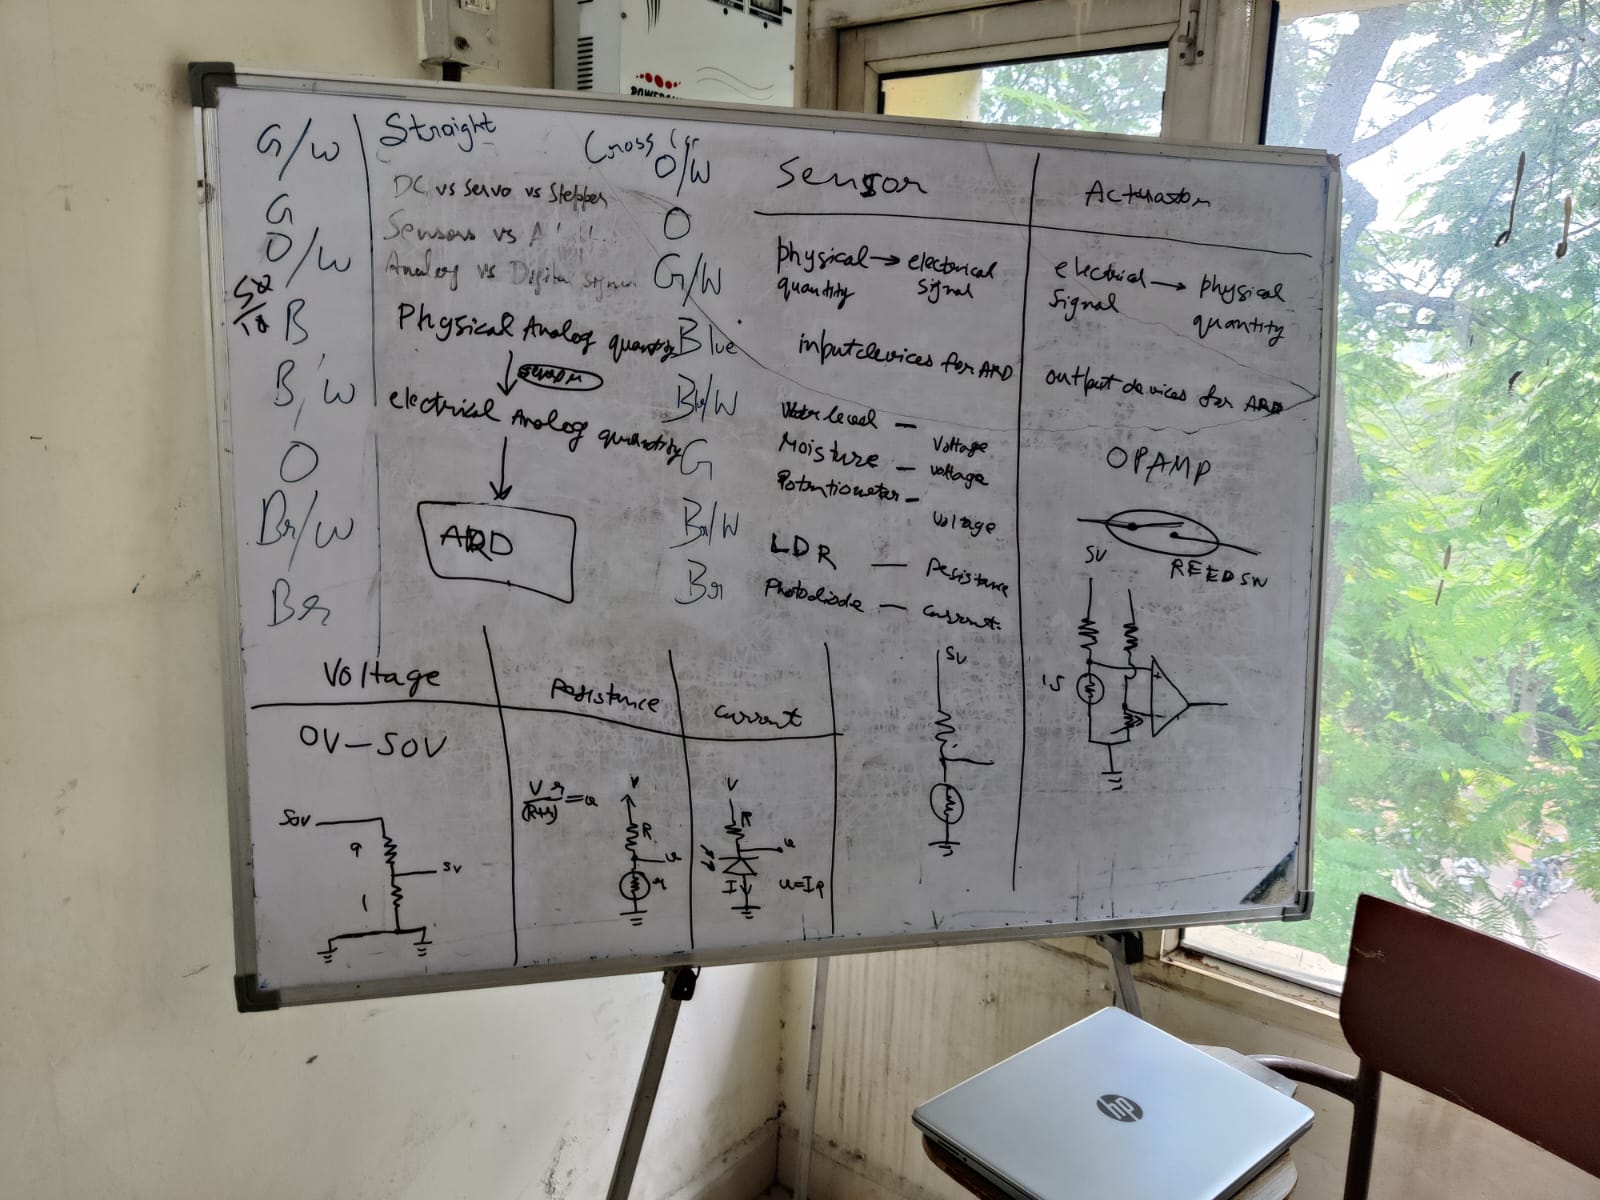 Straight
G/W
G
O/W
B
B/W
O
Br/W
Br
DC vs Servo vs Stepper
Sensors vs
Analog vs Digital
Physical Analog quantity
sensor
electrical Analog quantity
ARD
Cross
O/W
O
G/W
Blue
Br/W
G
Br/W
Br
Sensor
physical → electrical
quantity signal
input devices for ARD
Water level — Voltage
Moisture — voltage
Potentiometer — voltage
LDR — resistance
Photodiode — current.
Actuator
electrical → physical
signal quantity
output devices for ARD
OPAMP
REED SW
5V
+
Voltage
0V-50V
50V
9
5V
1
Resistance
V r
(R+r)
V
R
r
Current
V
R
I
5V
hp